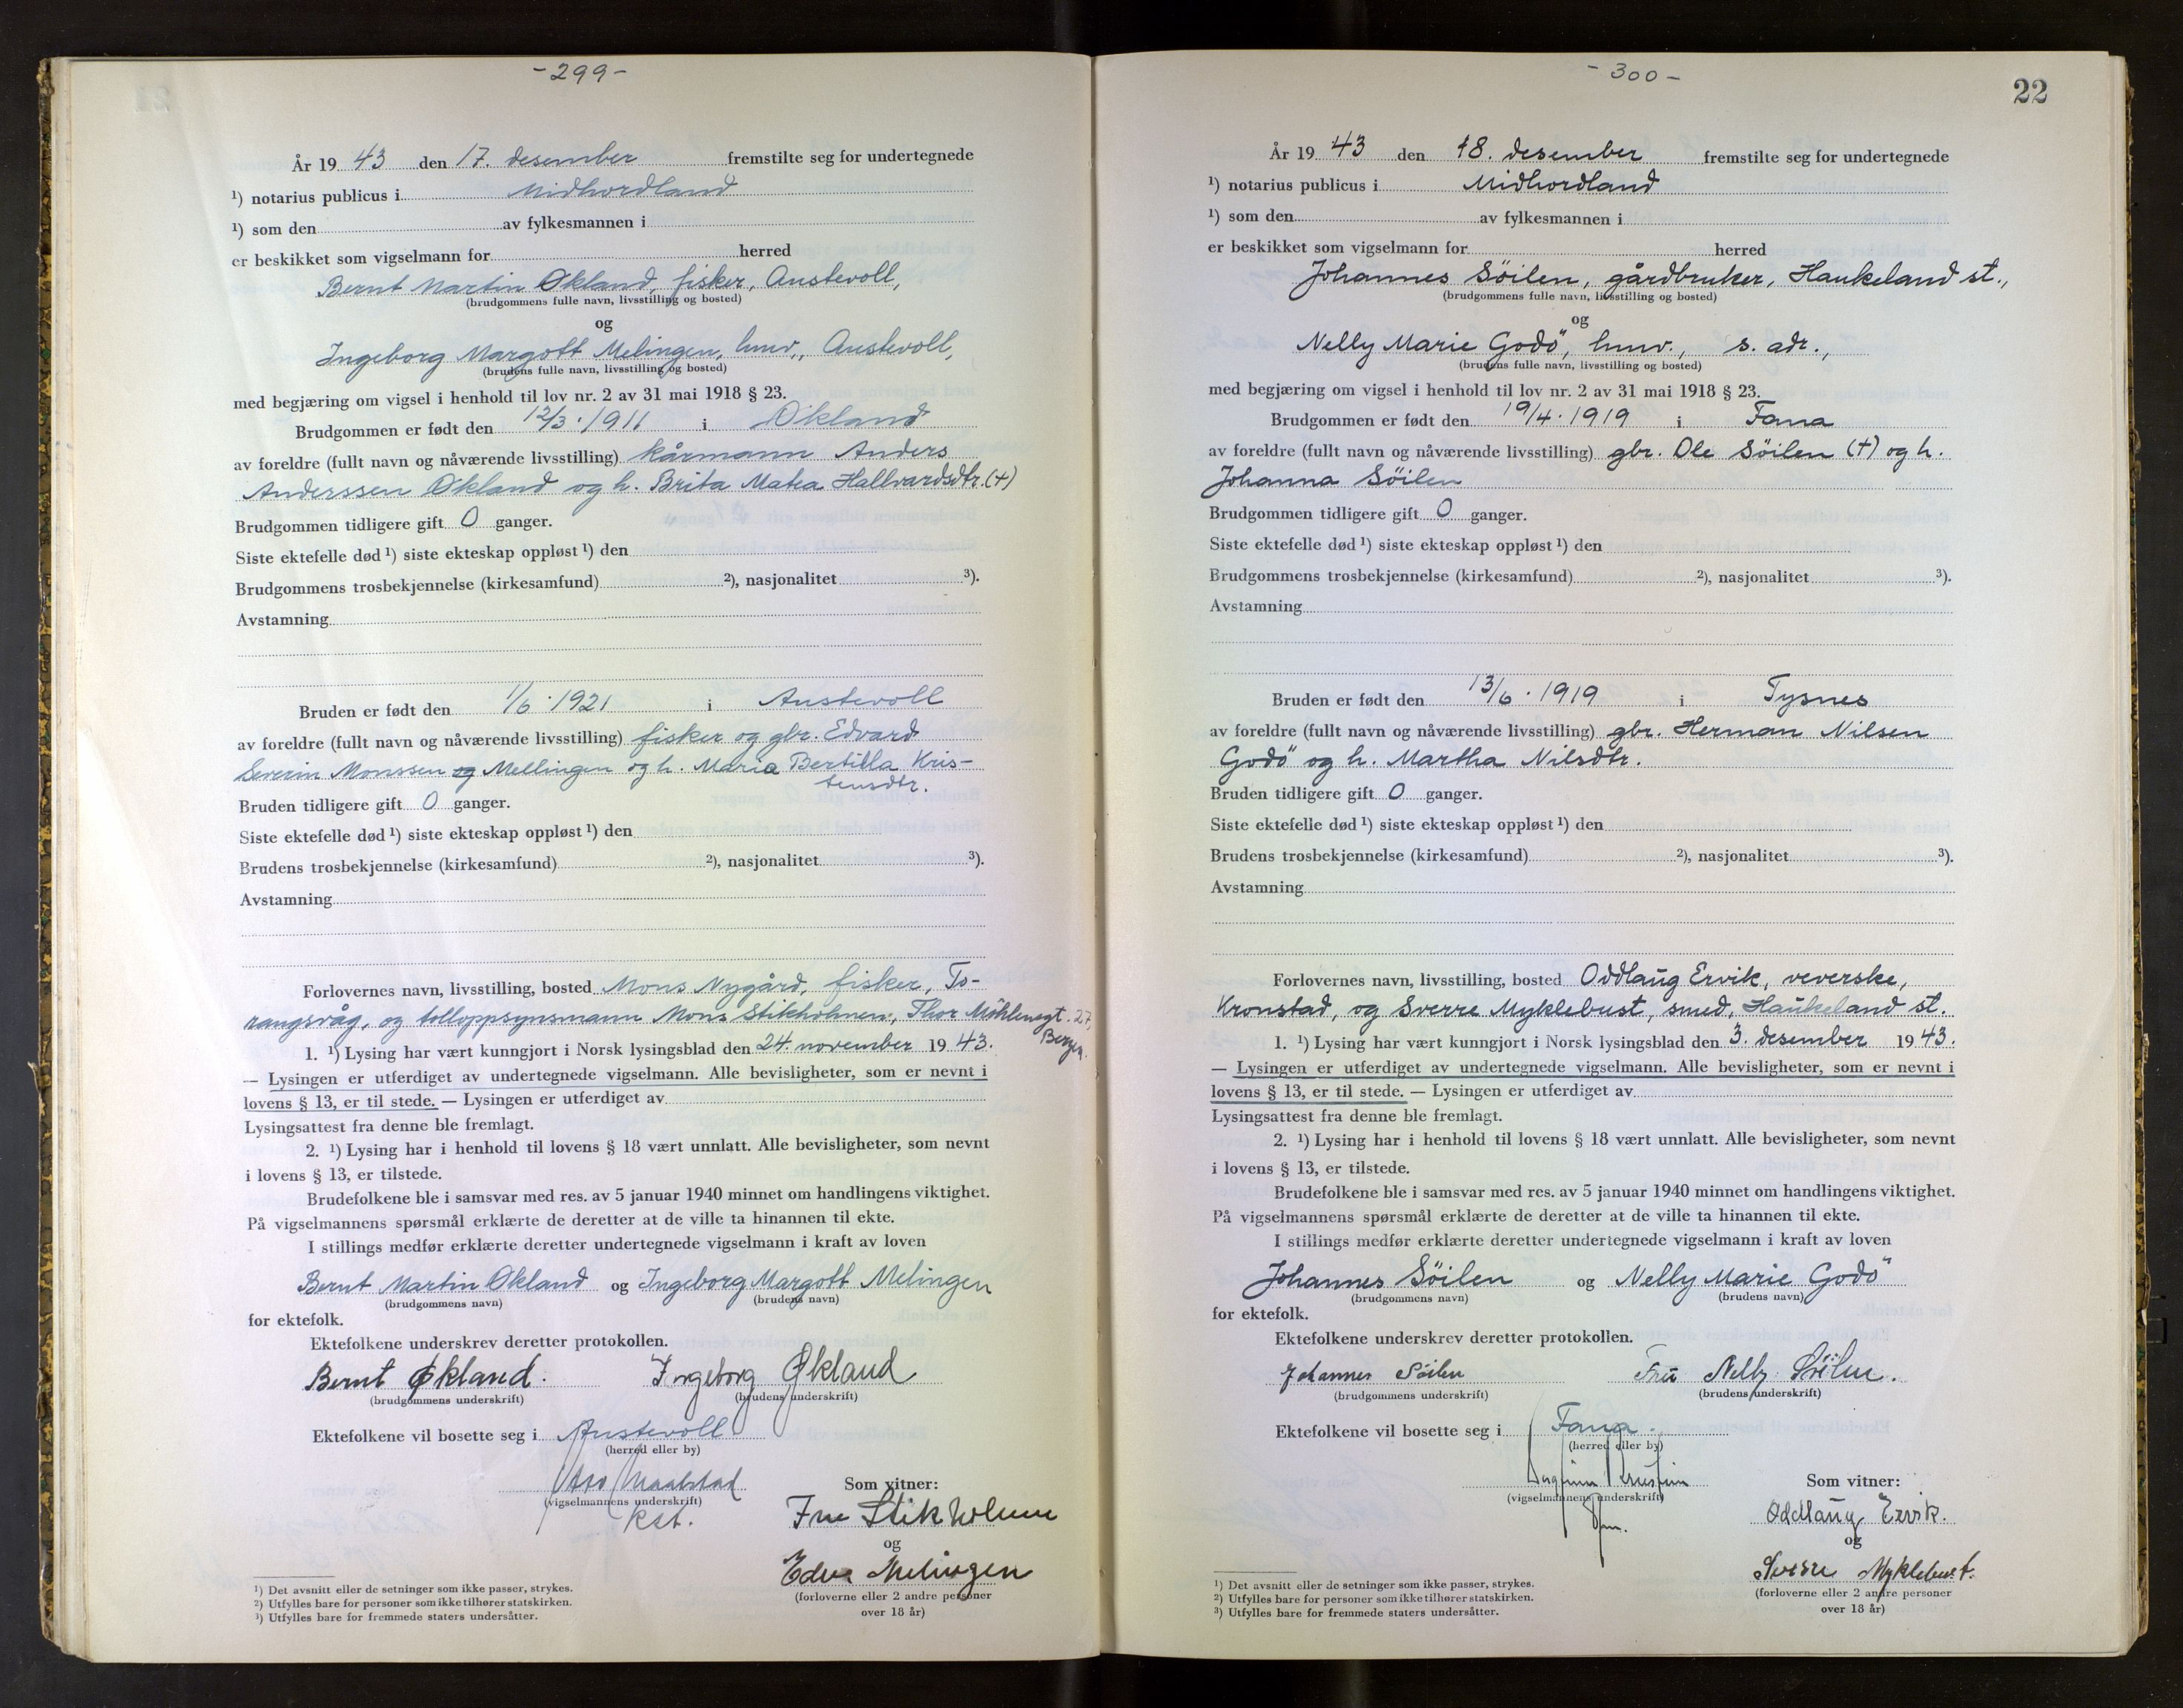 -299-
År 19 43 den 17. desember fremstilte seg for undertegnede
¹) notarius publicus i Midhordland
¹) som den av fylkesmannen i
er beskikket som vigselmann for herred
Bernt Martin Økland, fisker, Austevoll,
(brudgommens fulle navn, livsstilling og bosted)
og
Ingeborg Margott Melingen, hmv., Austevoll,
(brudens fulle navn, livsstilling og bosted)
med begjæring om vigsel i henhold til lov nr. 2 av 31 mai 1918 § 23.
Brudgommen er født den 12/3.1911 i Økland
av foreldre (fullt navn og nåværende livsstilling) kårmann Anders
Anderssen Økland og h. Brita Matea Hallvardsdtr. (+)
Brudgommen tidligere gift 0 ganger.
Siste ektefelle død ¹) siste ekteskap oppløst ¹) den
Brudgommens trosbekjennelse (kirkesamfund) ²), nasjonalitet ³).
Avstamning
Bruden er født den 1/6.1921 i Austevoll
av foreldre (fullt navn og nåværende livsstilling) fisker og gbr. Edvard
Severin Monssen og Mellingen og h. Maria Bertilla Kris-
tensdtr.
Bruden tidligere gift 0 ganger.
Siste ektefelle død ¹) siste ekteskap oppløst ¹) den
Brudens trosbekjennelse (kirkesamfund) ²), nasjonalitet ³).
Avstamning
Forlovernes navn, livsstilling, bosted Mons Nygård, fisker, To-
rangsvåg, og tolloppsynsmann Mons Stikholmen, Thor Möhlensgt. 27,
Bergen.
1. ¹) Lysing har vært kunngjort i Norsk lysingsblad den 24. november 19 43.
— Lysingen er utferdiget av undertegnede vigselmann. Alle bevisligheter, som er nevnt i
lovens § 13, er til stede. — Lysingen er utferdiget av
Lysingsattest fra denne ble fremlagt.
2. ¹) Lysing har i henhold til lovens § 18 vært unnlatt. Alle bevisligheter, som nevnt
i lovens § 13, er tilstede.
Brudefolkene ble i samsvar med res. av 5 januar 1940 minnet om handlingens viktighet.
På vigselmannens spørsmål erklærte de deretter at de ville ta hinannen til ekte.
I stillings medfør erklærte deretter undertegnede vigselmann i kraft av loven
Bernt Martin Økland og Ingeborg Margott Melingen
(brudgommens navn) (brudens navn)
for ektefolk.
Ektefolkene underskrev deretter protokollen.
Bernt Økland. Ingeborg Økland
(brudgommens underskrift) (brudens underskrift)
Ektefolkene vil bosette seg i Austevoll
(herred eller by)
Som vitner:
(vigselmannens underskrift)
kst.
Stikholmen
og
Melingen
(forloverne eller 2 andre personer
over 18 år)
¹) Det avsnitt eller de setninger som ikke passer, strykes.
²) Utfylles bare for personer som ikke tilhører statskirken.
³) Utfylles bare for fremmede staters undersåtter.
-300-
22
År 19 43 den 18. desember fremstilte seg for undertegnede
¹) notarius publicus i Midhordland
¹) som den av fylkesmannen i
er beskikket som vigselmann for herred
Johannes Söilen, gårdbruker, Haukeland st.,
(brudgommens fulle navn, livsstilling og bosted)
og
Nelly Marie Godö, hmv., s. adr.,
(brudens fulle navn, livsstilling og bosted)
med begjæring om vigsel i henhold til lov nr. 2 av 31 mai 1918 § 23.
Brudgommen er født den 19/4.1919 i Fana
av foreldre (fullt navn og nåværende livsstilling) gbr. Ole Söilen (+) og h.
Johanna Söilen
Brudgommen tidligere gift 0 ganger.
Siste ektefelle død ¹) siste ekteskap oppløst ¹) den
Brudgommens trosbekjennelse (kirkesamfund) ²), nasjonalitet ³).
Avstamning
Bruden er født den 13/6.1919 i Tysnes
av foreldre (fullt navn og nåværende livsstilling) gbr. Herman Nilsen
Godö og h. Martha Nilsdtr.
Bruden tidligere gift 0 ganger.
Siste ektefelle død ¹) siste ekteskap oppløst ¹) den
Brudens trosbekjennelse (kirkesamfund) ²), nasjonalitet ³).
Avstamning
Forlovernes navn, livsstilling, bosted Oddlaug Ervik, veverske,
Kronstad, og Sverre Myklebust, smed, Haukeland st.
1. ¹) Lysing har vært kunngjort i Norsk lysingsblad den 3. desember 19 43.
— Lysingen er utferdiget av undertegnede vigselmann. Alle bevisligheter, som er nevnt i
lovens § 13, er til stede. — Lysingen er utferdiget av
Lysingsattest fra denne ble fremlagt.
2. ¹) Lysing har i henhold til lovens § 18 vært unnlatt. Alle bevisligheter, som nevnt
i lovens § 13, er tilstede.
Brudefolkene ble i samsvar med res. av 5 januar 1940 minnet om handlingens viktighet.
På vigselmannens spørsmål erklærte de deretter at de ville ta hinannen til ekte.
I stillings medfør erklærte deretter undertegnede vigselmann i kraft av loven
Johannes Söilen og Nelly Marie Godö
(brudgommens navn) (brudens navn)
for ektefolk.
Ektefolkene underskrev deretter protokollen.
Johannes Söilen Fru Nelly Söilen.
(brudgommens underskrift) (brudens underskrift)
Ektefolkene vil bosette seg i Fana.
(herred eller by)
Som vitner:
(vigselmannens underskrift)
Oddlaug Ervik.
og
Sverre Myklebust.
(forloverne eller 2 andre personer
over 18 år)
¹) Det avsnitt eller de setninger som ikke passer, strykes.
²) Utfylles bare for personer som ikke tilhører statskirken.
³) Utfylles bare for fremmede staters undersåtter.